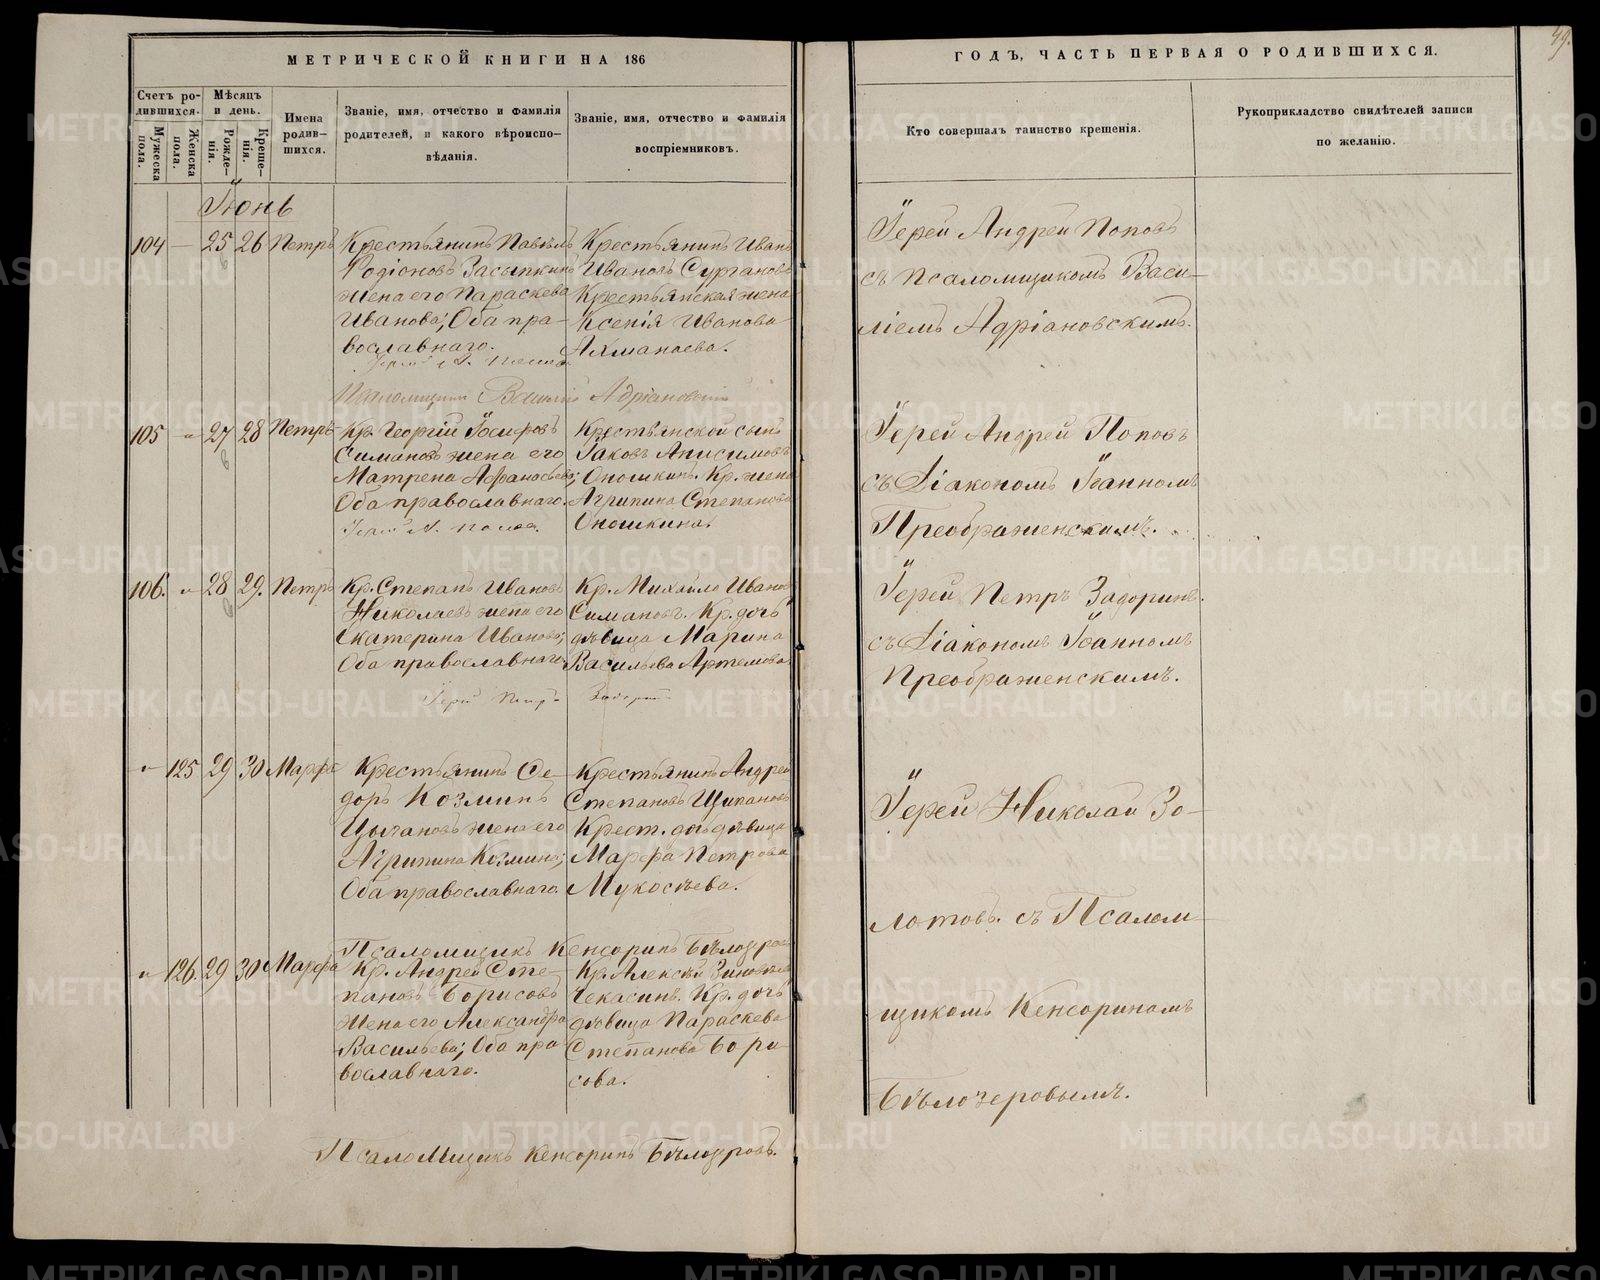 МЕТРИЧЕСКОЙ КНИГИ НА 186
Счетъ ро-
дившихся.
Мѣсяцъ
и день.
Мужеска
пола.
Женска
пола.
Рожде-
нія.
Креще-
нія.
Имена
родив-
шихся.
Званіе, имя, отчество и фамилія
родителей, и какого вѣроиспо-
вѣданія.
Званіе, имя, отчество и фамилія
воспріемниковъ.
Іюнь
104 — 25 26 Петръ
Крестьянинъ Павелъ
Родіоновъ Засыпкинъ
жена его Параскева
Иванова; Оба пра-
вославнаго.
Крестьянинъ Иванъ
Ивановъ Сургановъ
Крестьянская жена
Ксенія Иванова
Ахманаева.
Псаломщикъ Василій Адріановскій
105 „ 27 28 Петръ
Кр. Георгій Іосифовъ
Симановъ жена его
Матрена Афанасьева;
Оба православнаго.
Іерей А. Поповъ.
Крестьянской сынъ
Іаковъ Анисимовъ
Оношкинъ. Кр. жена
Агрипина Степанова
Оношкина.
106. „ 28 29. Петръ
Кр. Степанъ Ивановъ
Николаевъ жена его
Екатерина Иванова;
Оба православнаго.
Кр. Михайло Иванов
Симановъ. Кр. дочь
дѣвица Марина
Васильева Артемова.
Іерей Петръ Задорин
„ 125 29 30 Марфа
Крестьянинъ Се-
доръ Козминъ
Цычановъ жена его
Агрипина Козмина;
Оба православнаго.
Крестьянинъ Андрей
Степановъ Щипановъ
Крест. дочь дѣвица
Марфа Петрова
Мукосѣева.
Псаломщикъ Кенсоринъ Бѣлозеров
„ 126. 29 30 Марфа
Кр. Андрей Сте-
пановъ Борисовъ
жена его Александра
Васильева; Оба пра-
вославнаго.
Кр. Алексѣй Зиновьев
Чекасинъ. Кр. дочь
дѣвица Параскева
Степанова Бори-
сова.
Псаломщикъ Кенсоринъ Бѣлозеровъ.
ГОДЪ, ЧАСТЬ ПЕРВАЯ О РОДИВШИХСЯ.
49.
Кто совершалъ таинство крещенія.
Рукоприкладство свидѣтелей записи
по желанію.
Іерей Андрей Поповъ
съ псаломщикомъ Васи-
ліемъ Адріановскимъ.
Іерей Андрей Поповъ
съ Діакономъ Іоанномъ
Преображенскимъ.
Іерей Петръ Задоринъ.
съ Діакономъ Іоанномъ
Преображенскимъ.
Іерей Николай Зо-
лотовъ. съ Псалом-
щикомъ Кенсориномъ
Бѣлозеровымъ.
METRIKI.GASO-URAL.RU